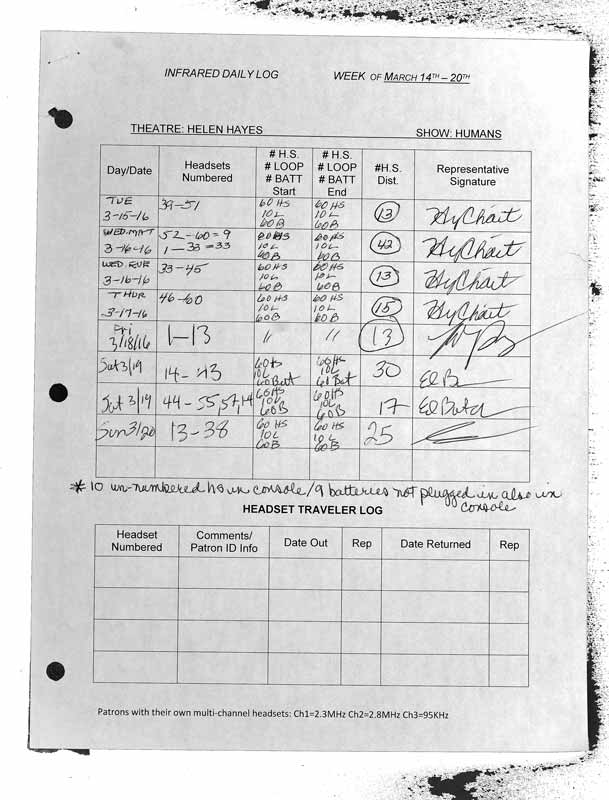 INFRARED DAILY LOG WEEK OF MARCH 14TH – 20TH
THEATRE: HELEN HAYES SHOW: HUMANS
Day/Date Headsets Numbered # H.S. # LOOP # BATT Start # H.S. # LOOP # BATT End #H.S. Dist. Representative Signature
TUE 3-15-16 39-51 60 HS 10 L 60 B 60 HS 10 L 60 B 13
WED.MAT 3-16-16 52-60=9 1-33=33 60 HS 10 L 60B 60 HS 10 L 60B 42
WED. EVE 3-16-16 33-45 60HS 10L 60B 60HS 10L 60B 13
THUR 3-17-16 46-60 60HS 10L 60B 60HS 10L 60B 15
Fri 3/18/16 1-13 // // 13
Sat 3/19 14- 60HS 10L 60Bat 60HS 10L 60Bat 30
Sat 3/19 44-55,57,14 60HS 10L 60B 60HS 10L 60B 17
Sun 3/20 13-38 60 HS 10L 60B 60 HS 10L 60B 25
* 10 un-numbered HS in console/9 batteries not plugged in also in
console
HEADSET TRAVELER LOG
Headset Numbered Comments/ Patron ID Info Date Out Rep Date Returned Rep
Patrons with their own multi-channel headsets: Ch1=2.3MHz Ch2=2.8MHz Ch3=95KHz